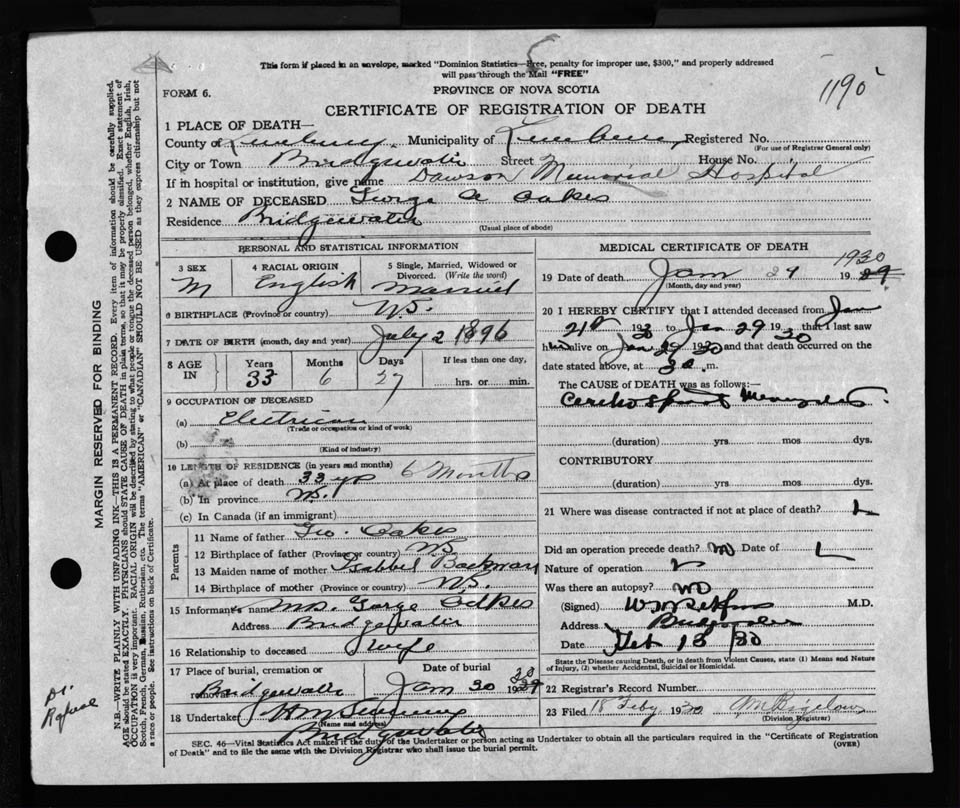 This form if placed in an envelope, marked "Dominion Statistics—Free, penalty for improper use, $300," and properly addressed
will pass through the Mail "FREE"
FORM 6.
PROVINCE OF NOVA SCOTIA
1190
CERTIFICATE OF REGISTRATION OF DEATH
1 PLACE OF DEATH—
County of Lunenburg Municipality of Lunenburg Registered No.
(For use of Registrar General only)
City or Town Bridgewater Street House No.
If in hospital or institution, give name Dawson Memorial Hospital
2 NAME OF DECEASED George A Oakes
Residence Bridgewater
(Usual place of abode)
PERSONAL AND STATISTICAL INFORMATION
3 SEX 4 RACIAL ORIGIN 5 Single, Married, Widowed or
Divorced. (Write the word)
M English Married
6 BIRTHPLACE (Province or country) N.S.
7 DATE OF BIRTH (month, day and year) July 2 1896
8 AGE IN Years Months Days If less than one day,
33 6 27 hrs. or min.
9 OCCUPATION OF DECEASED
(a) Electrician
(Trade or occupation or kind of work)
(b)
(Kind of industry)
10 LENGTH OF RESIDENCE (in years and months) 6 Months
(a) At place of death 33 yrs
(b) In province N.S.
(c) In Canada (if an immigrant)
Parents
11 Name of father Geo. Oakes
12 Birthplace of father (Province or country) NS
13 Maiden name of mother Isabbel Backman
14 Birthplace of mother (Province or country) NS.
15 Informants name Mrs. George Oakes
Address Bridgewater
16 Relationship to deceased wife
17 Place of burial, cremation or Date of burial
removal Bridgewater Jan 30 1929 30
18 Undertaker
(Name and address)
Bridgewater
MEDICAL CERTIFICATE OF DEATH
19 Date of death Jan 29 1929 1930
(Month, day and year)
20 I HEREBY CERTIFY that I attended deceased from Jan
21st 1930 to Jan 29 1930 that I last saw
him alive on Jan 29 1930 and that death occurred on the
date stated above, at 3 a. m.
The CAUSE of DEATH was as follows:—
Cerebro Spinal Meningitis.
(duration) yrs mos dys.
CONTRIBUTORY
(duration) yrs. mos dys.
21 Where was disease contracted if not at place of death?
Did an operation precede death? no Date of
Nature of operation
Was there an autopsy? no
(Signed) M.D.
Address Bridgewater
Date Feb 18 / 30
State the Disease causing Death, or in death from Violent Causes, state (1) Means and Nature
of Injury, (2) whether Accidental, Suicidal or Homicidal.
22 Registrar's Record Number
23 Filed 18 Feby 1930
(Division Registrar)
SEC. 46—Vital Statistics Act makes it the duty of the Undertaker or person acting as Undertaker to obtain all the particulars required in the "Certificate of Registration
of Death" and to file the same with the Division Registrar who shall issue the burial permit.
(OVER)
MARGIN RESERVED FOR BINDING
N.B.—WRITE PLAINLY WITH UNFADING INK—THIS IS A PERMANENT RECORD. Every item of information should be carefully supplied.
AGE should be stated EXACTLY. PHYSICIANS should STATE CAUSE OF DEATH in plain terms, so that it may be properly classified. Exact statement of
OCCUPATION is very important. RACIAL ORIGIN will be described by stating to what people or tongue the deceased person belonged, whether English, Irish,
Scotch, French, German, Russian, Ruthenian, etc. The terms "AMERICAN" or "CANADIAN" SHOULD NOT BE USED as they express citizenship but not
a race or people. See instructions on back of Certificate.